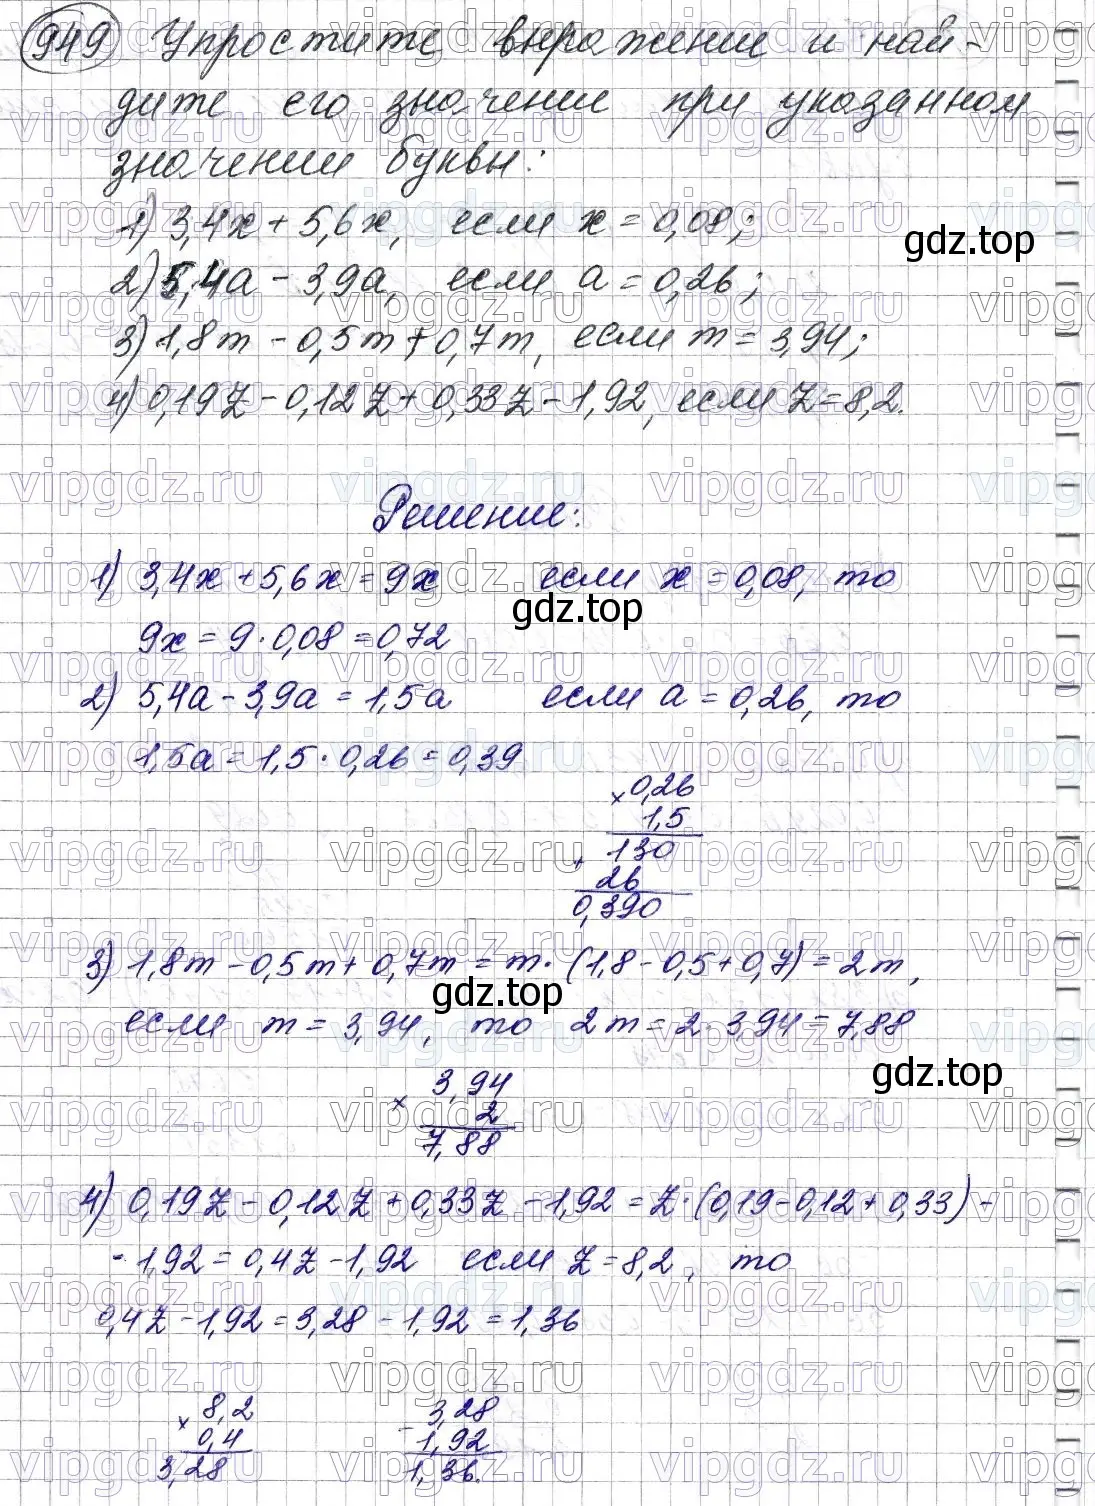 949 Упростите выражение и най-
дите его значение при указанном
значении буквы:
1) 3,4x + 5,6x, если x = 0,08;
gdz.top
2) 5,4a - 3,9a, если a = 0,26;
3) 1,8m - 0,5m + 0,7m, если m = 3,94;
4) 0,19z - 0,12z + 0,33z - 1,92, если z = 8,2.
Решение:
1) 3,4x + 5,6x = 9x если x = 0,08, то
gdz.top
9x = 9 · 0,08 = 0,72
2) 5,4a - 3,9a = 1,5a если a = 0,26, то
1,5a = 1,5 · 0,26 = 0,39
× 0,26
1,5
+ 130
26
0,390
3) 1,8m - 0,5m + 0,7m = m · (1,8 - 0,5 + 0,7) = 2m,
gdz.top
если m = 3,94, то 2m = 2 · 3,94 = 7,88
gdz.top
× 3,94
2
7,88
4) 0,19z - 0,12z + 0,33z - 1,92 = z · (0,19 - 0,12 + 0,33) -
- 1,92 = 0,4z - 1,92 если z = 8,2, то
0,4z - 1,92 = 3,28 - 1,92 = 1,36
× 8,2 - 3,28
0,4 1,92
3,28 1,36.
vipgdz.ru